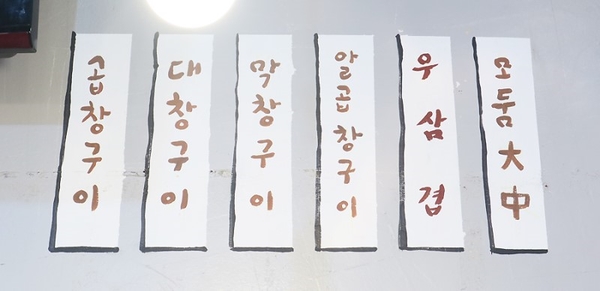 곱창구이
대창구이
막창구이
알곱창구이
우삼겹
모둠大中